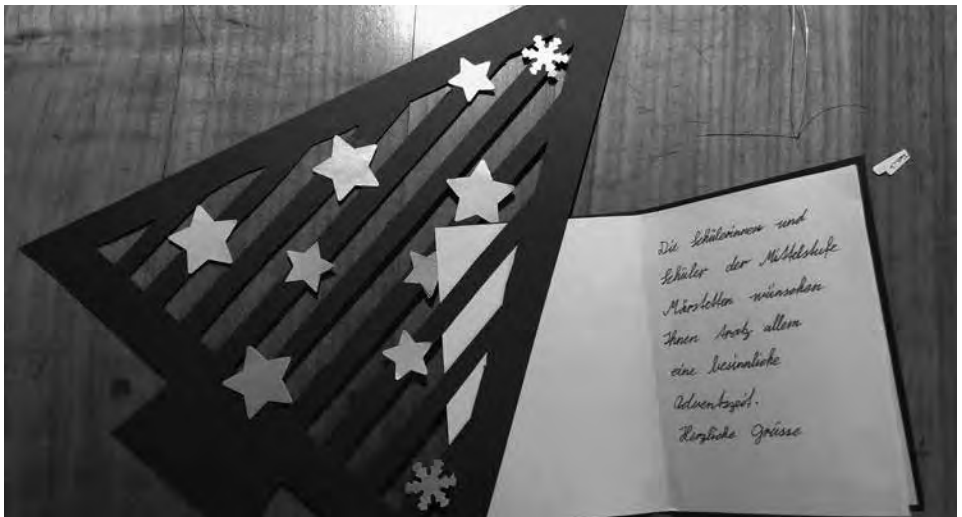 Die Schülerinnen und
Schüler der Mittelstufe
Märstetten wünschen
Ihnen trotz allem
eine besinnliche
Adventszeit.
Herzliche Grüsse